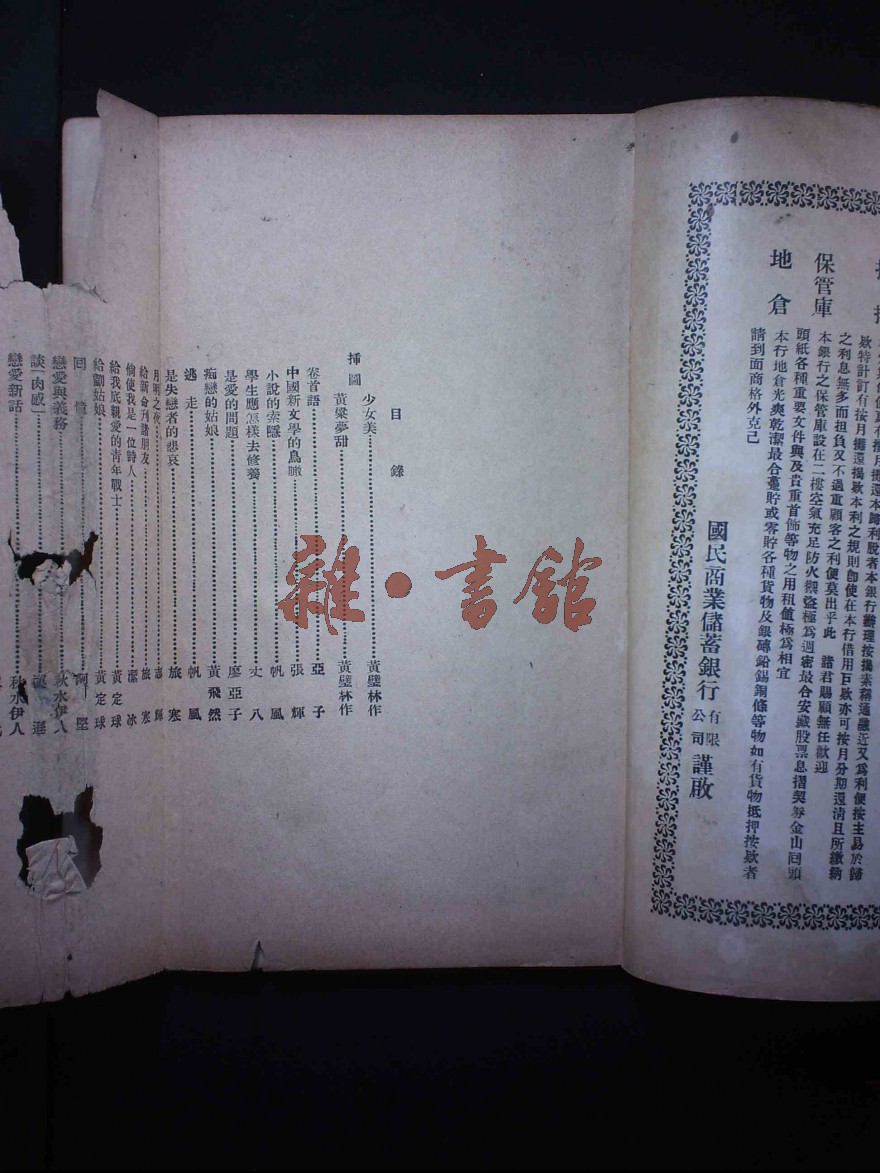 保管庫
地倉
之利息無多而担負又不過重顧客之利便莫出乎此　諸君賜顧無任歡迎
本銀行之保管庫設在二樓空氣充足防火禦盜極為週密最合安藏股票息摺契券金山回頭
頭紙各種重要文件與及貴重首飾等物之用租值極為相宜
本行地倉光爽乾潔最合臺貯或零貯各種貨物及銀磚鉛錫銅條等物如有貨物抵押按欵者
請到面商格外克己
國民商業儲蓄銀行有限公司謹啟
目錄
插圖
少女美 黃璧林作
黃粱夢甜 黃璧林作
卷首語 亞子
中國新文學的鳥瞰 張輝
小說的索隱 帆風
學生應怎樣去修養 丈八
是愛的問題 廖亞子
痴戀的姑娘 黃飛然
逃走 帆風
是失戀者的悲哀 旅寒
月明之夜
給新命刊諸朋友 旅寒
倘使我是一位詩人 潔冰
給我底親愛的青年戰士 黃定球
給劉姑娘 黃定球
回憶
戀愛與義務 秋水伊人
談「肉感」
戀愛新話 秋水伊人
雜·書館